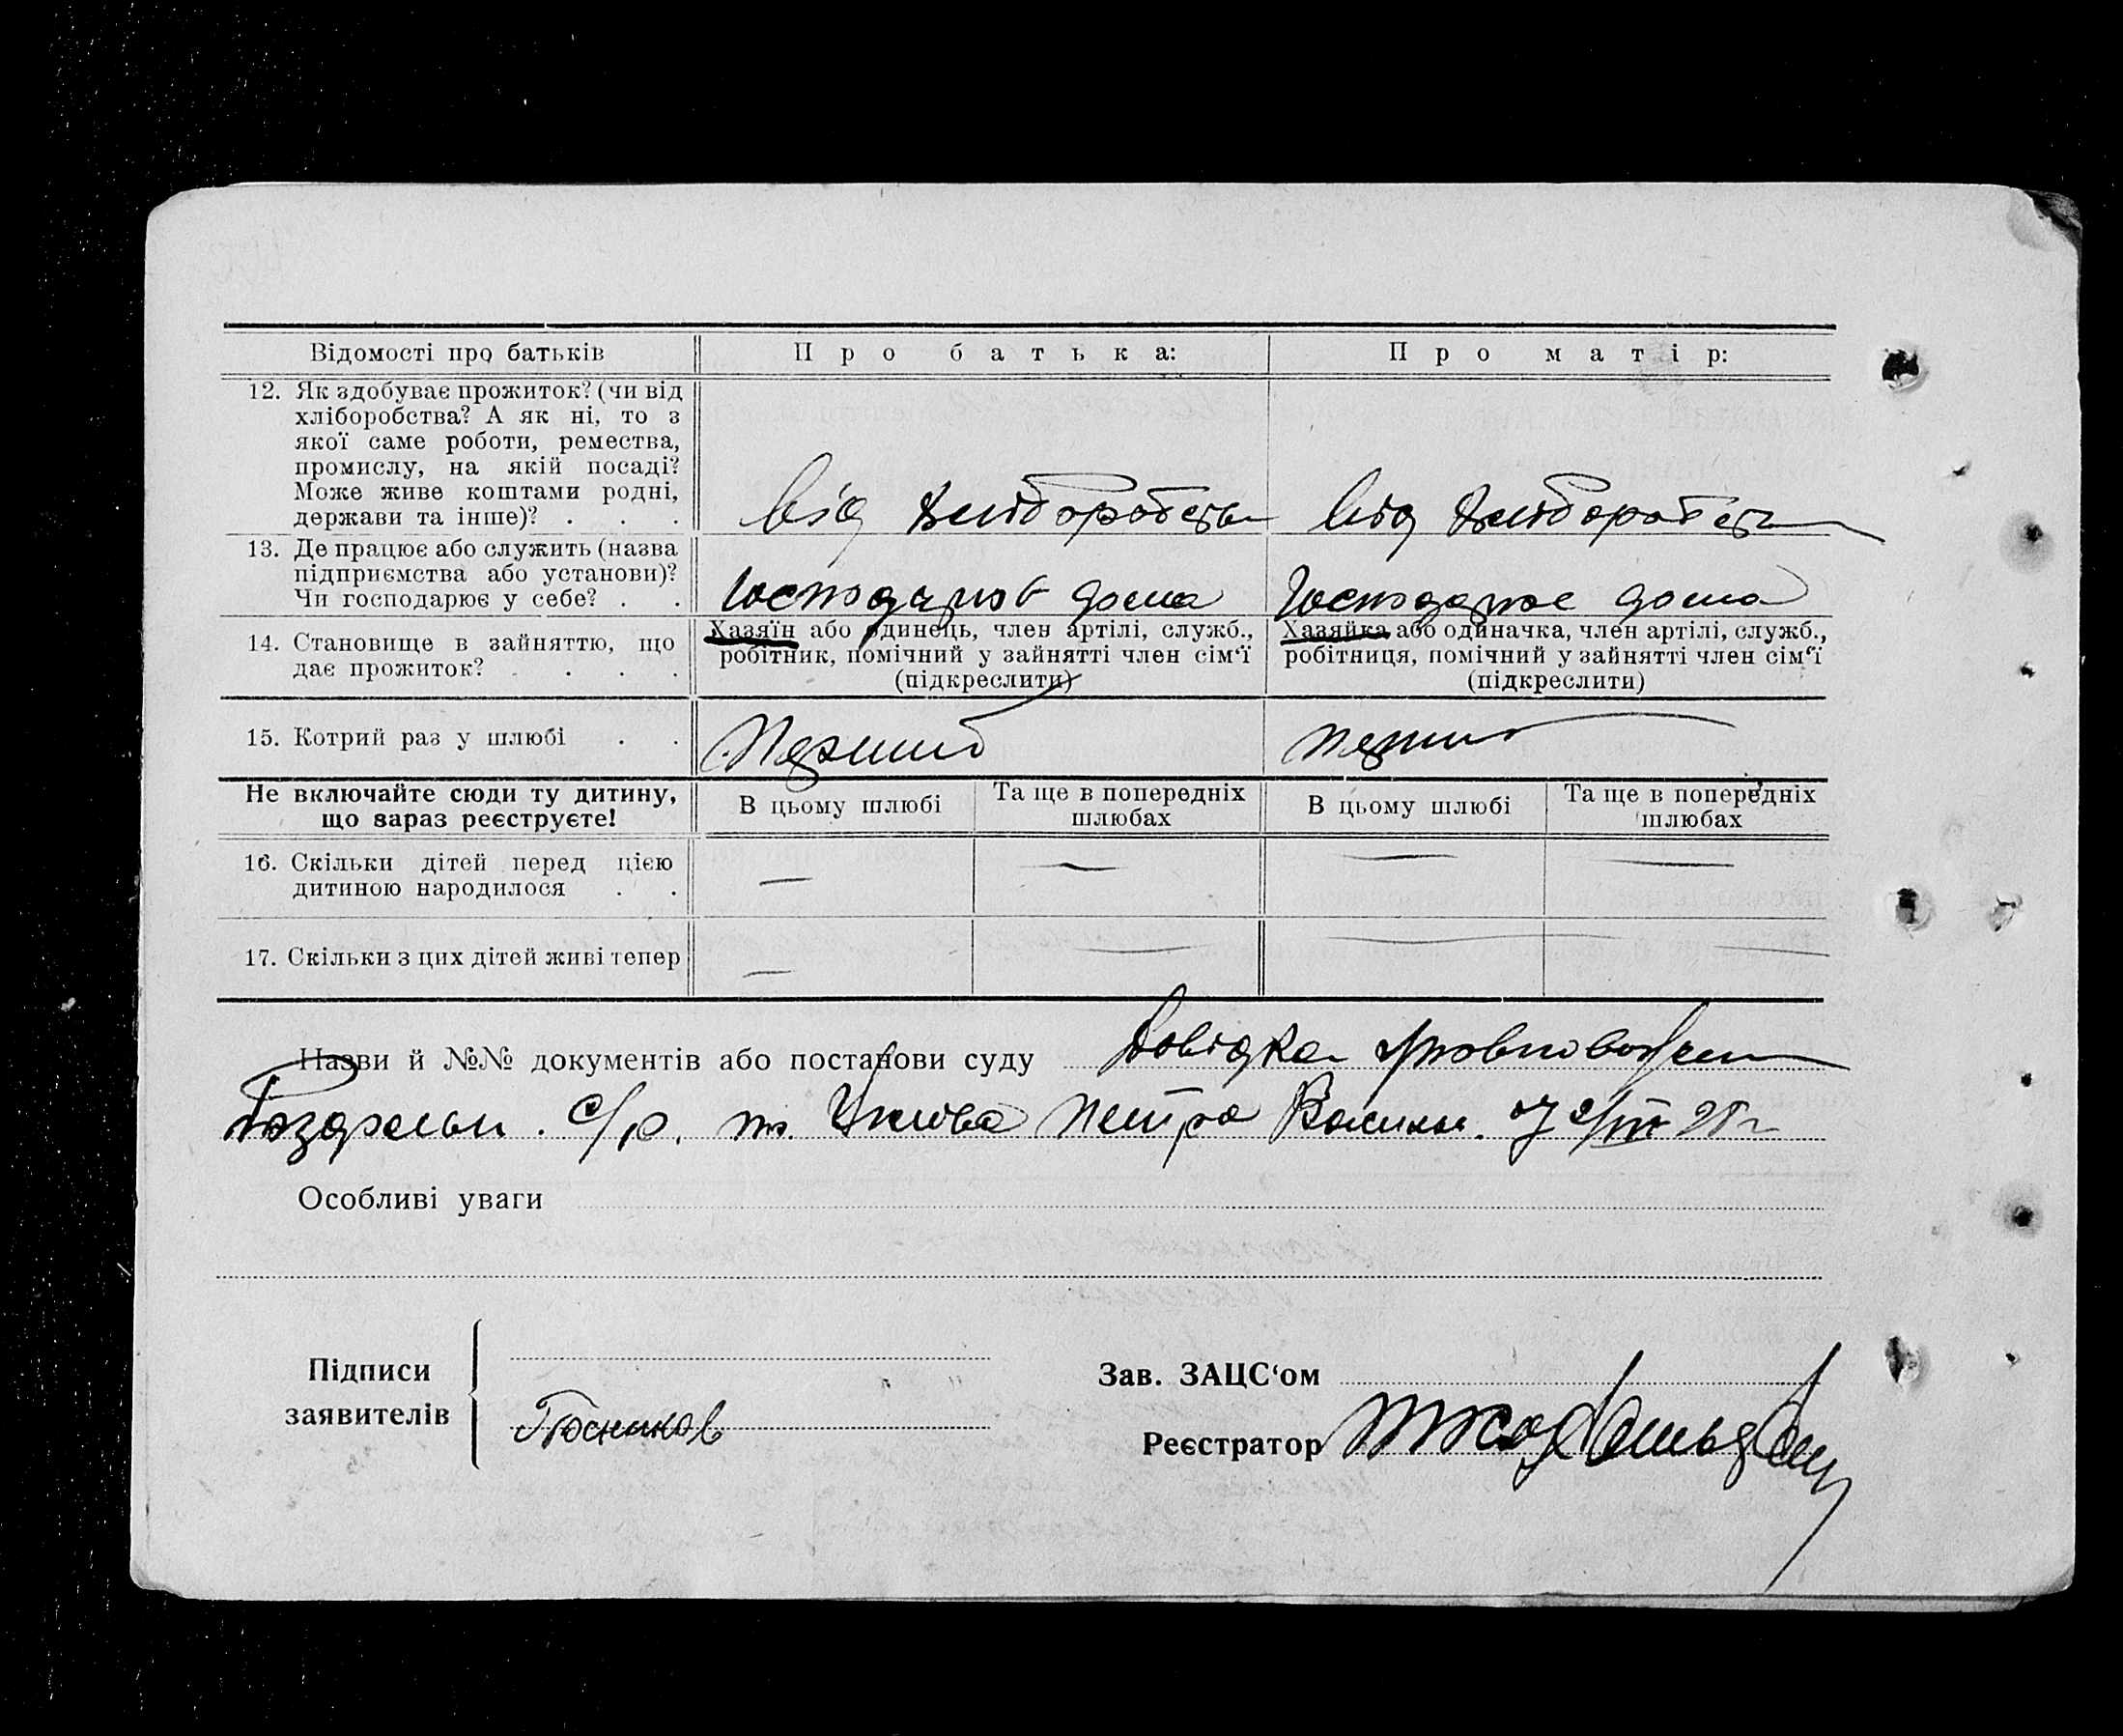 Відомості про батьків
Про батька:
Про матір:
12. Як здобуває прожиток? (чи від
хліборобства? А як ні, то з
якої саме роботи, ремества,
промислу, на якій посаді?
Може живе коштами родні,
держави та інше)? . . .
від хліборобства
від хліборобства
13. Де працює або служить (назва
підприємства або установи)?
Чи господарює у себе? . .
дома
Господарює дома
14. Становище в зайняттю, що
дає прожиток? . . . .
Хазяїн або одинець, член артілі, служб.,
робітник, помічний у зайнятті член сім‘ї
(підкреслити)
Хазяйка або одиначка, член артілі, служб.,
робітниця, помічний у зайнятті член сім‘ї
(підкреслити)
15. Котрий раз у шлюбі . .
Перший
перший
Не включайте сюди ту дитину,
що зараз реєструєте!
В цьому шлюбі
Та ще в попередніх
шлюбах
В цьому шлюбі
Та ще в попередніх
шлюбах
16. Скільки дітей перед цією
дитиною народилося . .
— — — —
17. Скільки з цих дітей живі тепер
— — — —
Назви й №№ документів або постанови суду Довідка
с/р. Петра
Особливі уваги
Підписи
заявителів
Зав. ЗАЦС‘ом
Реєстратор